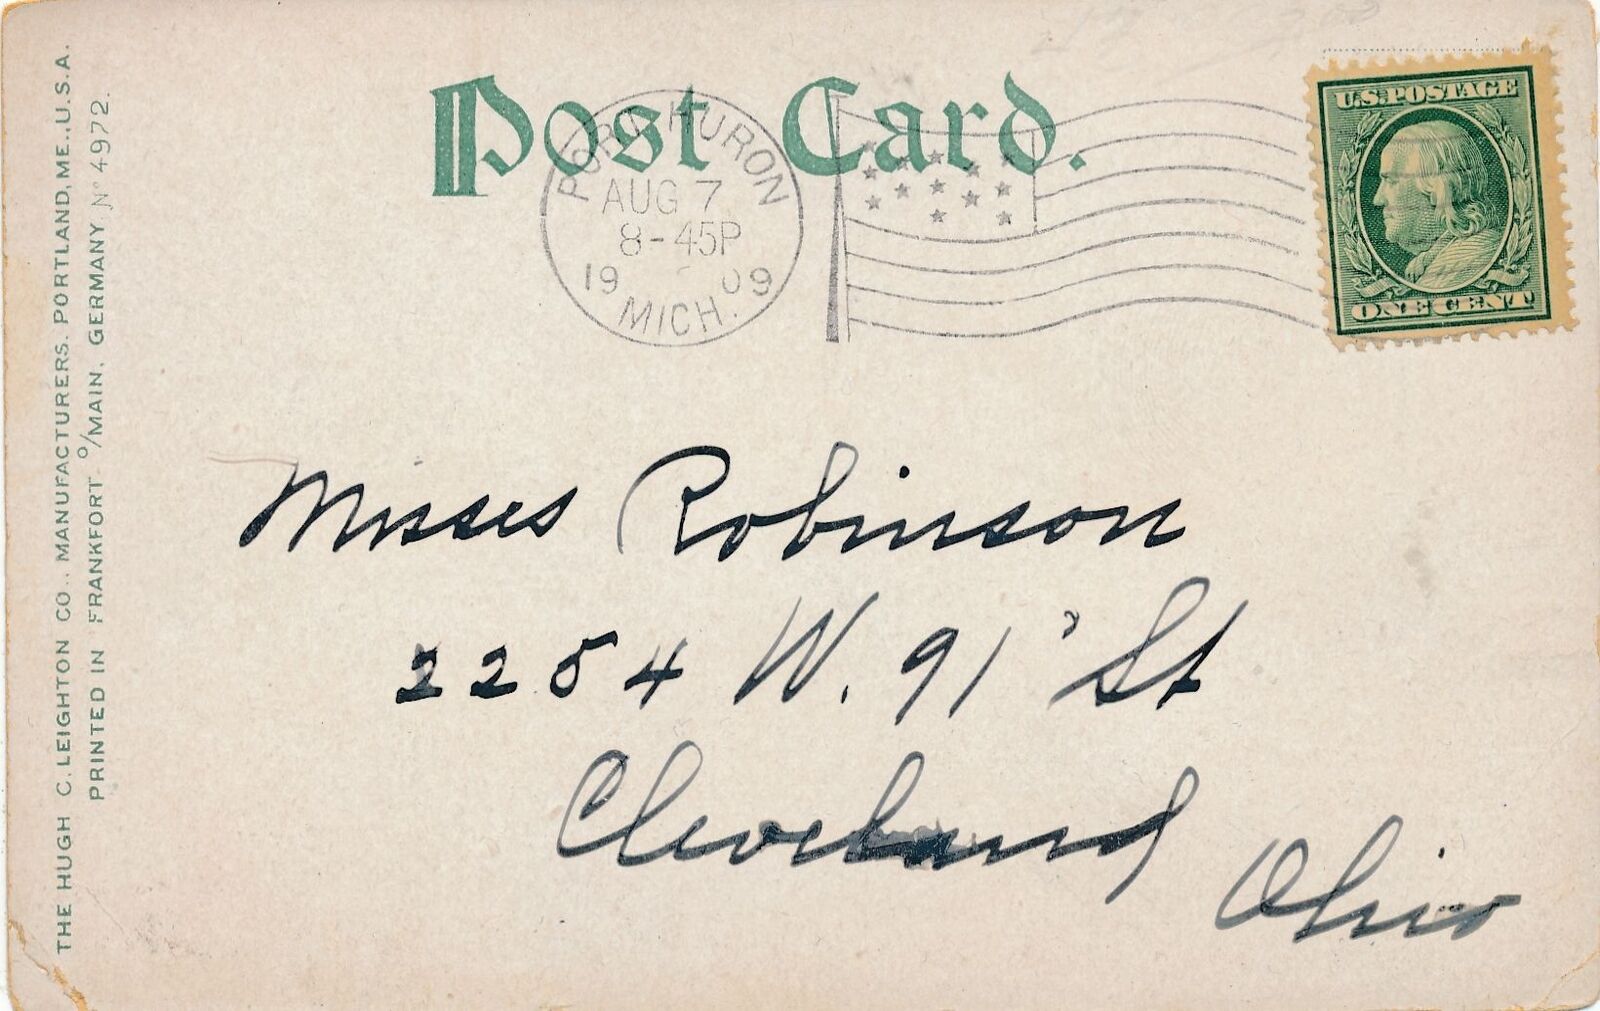 Post Card.
PORT HURON
AUG 7
8-45P
1909
MICH.
U.S.POSTAGE
ONE CENT
Misses Robinson
2254 W. 91 St
Cleveland
Ohio
THE HUGH C. LEIGHTON CO., MANUFACTURERS. PORTLAND, ME., U.S.A.
PRINTED IN FRANKFORT O/MAIN, GERMANY Nº 4972.